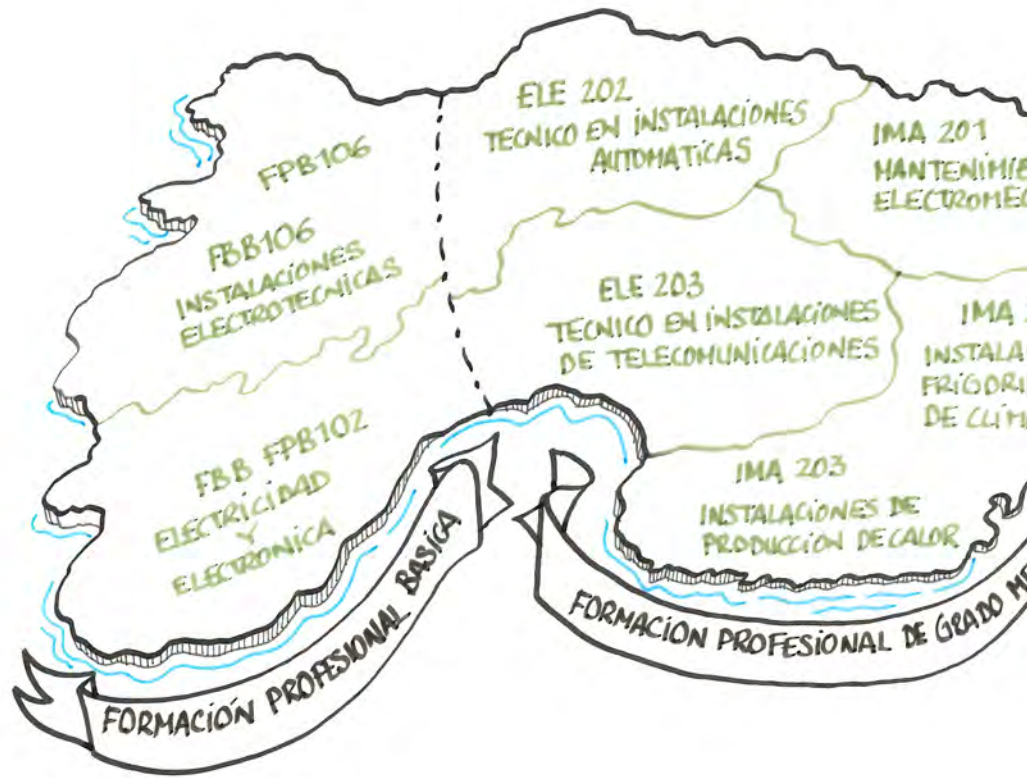 FPB106
FBB106
INSTALACIONES
ELECTROTECNICAS
FBB FPB102
ELECTRICIDAD
Y
ELECTRONICA
FORMACIÓN PROFESIONAL BASICA
ELE 202
TECNICO EN INSTALACIONES
AUTOMATICAS
ELE 203
TECNICO EN INSTALACIONES
DE TELECOMUNICACIONES
IMA 201
MANTENIMIE
ELECTROMEC
IMA
INSTALA
FRIGORI
DE CLIMA
IMA 203
INSTALACIONES DE
PRODUCCION DE CALOR
FORMACION PROFESIONAL DE GRADO ME